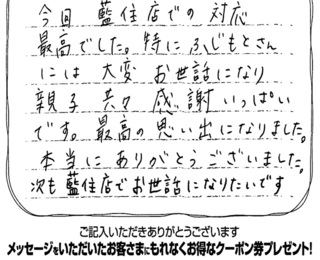 今回 藍住店での 対応
最高でした。特に ふじもとさん
には 大変 お世話になり
親子 共々 感謝 いっぱい
です。最高の思い出になりました。
本当に ありがとうございました。
次も 藍住店でお世話になりたいです
ご記入いただきありがとうございます
メッセージをいただいたお客さまにもれなくお得なクーポン券プレゼント!